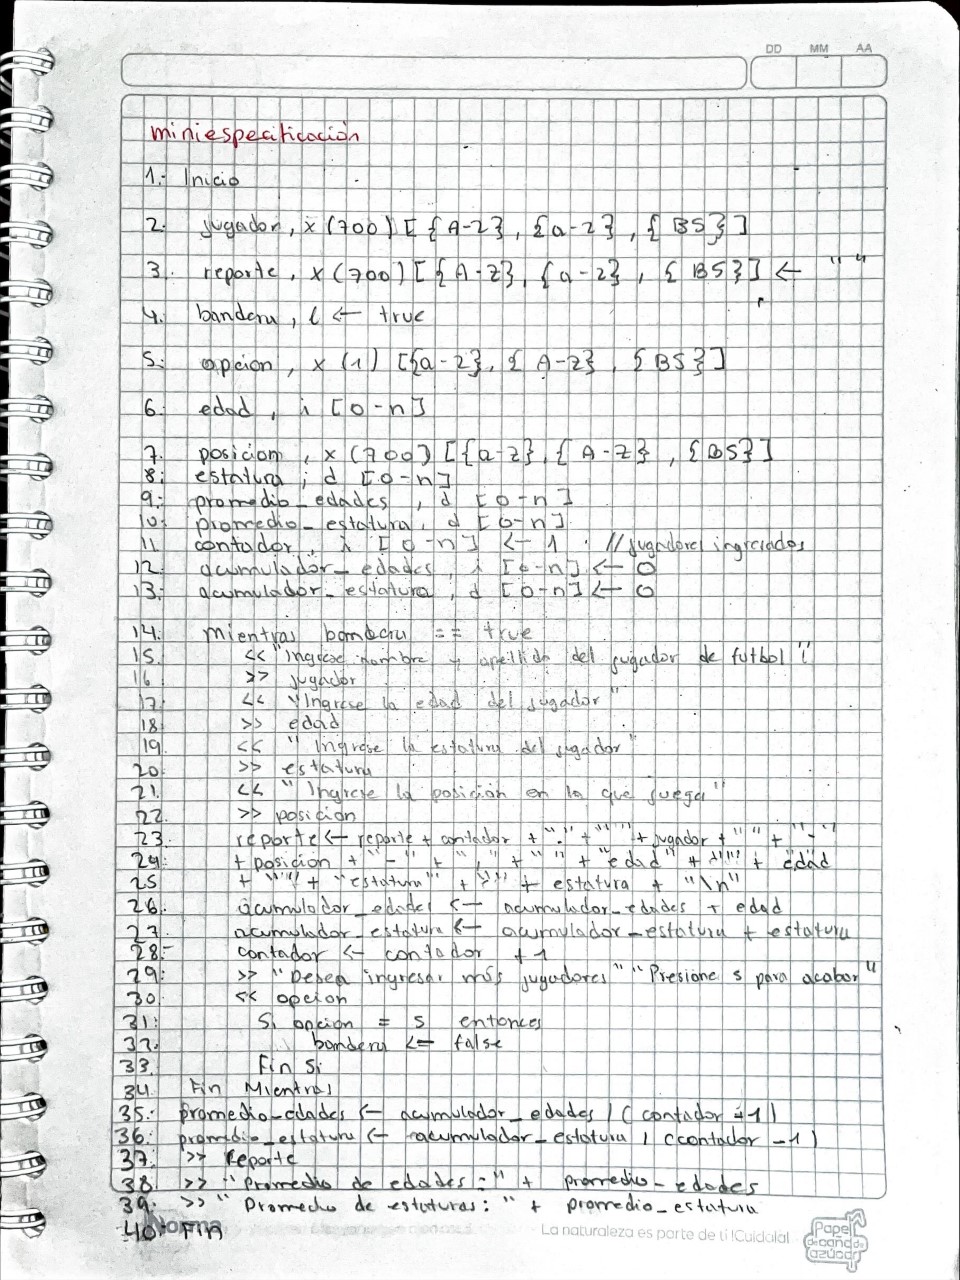 DD MM AA
miniespecificación
1.- Inicio
2. jugador, x (700) [ {A-Z}, {a-z}, {BS} ]
3. reporte, x (700) [ {A-Z}, {a-z}, {BS} ] ← " "
4. bandera, l ← true
5. opcion, x (1) [{a-z}, {A-Z}, {BS}]
6. edad, i [0-n]
7. posicion, x (700) [{a-z}, {A-Z}, {BS}]
8. estatura, d [0-n]
9. promedio_edades, d [0-n]
10. promedio_estatura, d [0-n]
11 contador, i [0-n] ← 1 //jugadores ingresados
12. acumulador_edades, i [0-n] ← 0
13. acumulador_estatura, d [0-n] ← 0
14. mientras bandera == true
15. << "Ingrese nombre y apellido del jugador de futbol":
16 >> jugador
17. << "Ingrese la edad del jugador"
18 >> edad
19. << "Ingrese la estatura del jugador"
20. >> estatura
21. << "Ingrese la posición en la que juega"
22. >> posicion
23. reporte ← reporte + contador + "." + " " + jugador + " " + "-"
24. + posicion + "-" + "," + " " + "edad" + " " + edad
25 + " " + "estatura" + " " + estatura + "\n"
26. acumulador_edades ← acumulador_edades + edad
27. acumulador_estatura ← acumulador_estatura + estatura
28.- contador ← contador + 1
29: >> "Desea ingresar más jugadores" "Presione s para acabar"
30. << opcion
31: Si opcion = s entonces
32. bandera <= false
33. Fin Si
34. Fin Mientras
35.: promedio_edades ← acumulador_edades / (contador -1)
36.: promedio_estatura ← acumulador_estatura / (contador -1)
37: >> Reporte
38. >> "Promedio de edades:" + promedio_edades
39. >> "Promedio de estaturas:" + promedio_estatura
40. FIN
Norma
La naturaleza es parte de ti !Cuidala!
Papel de caña de azúcar